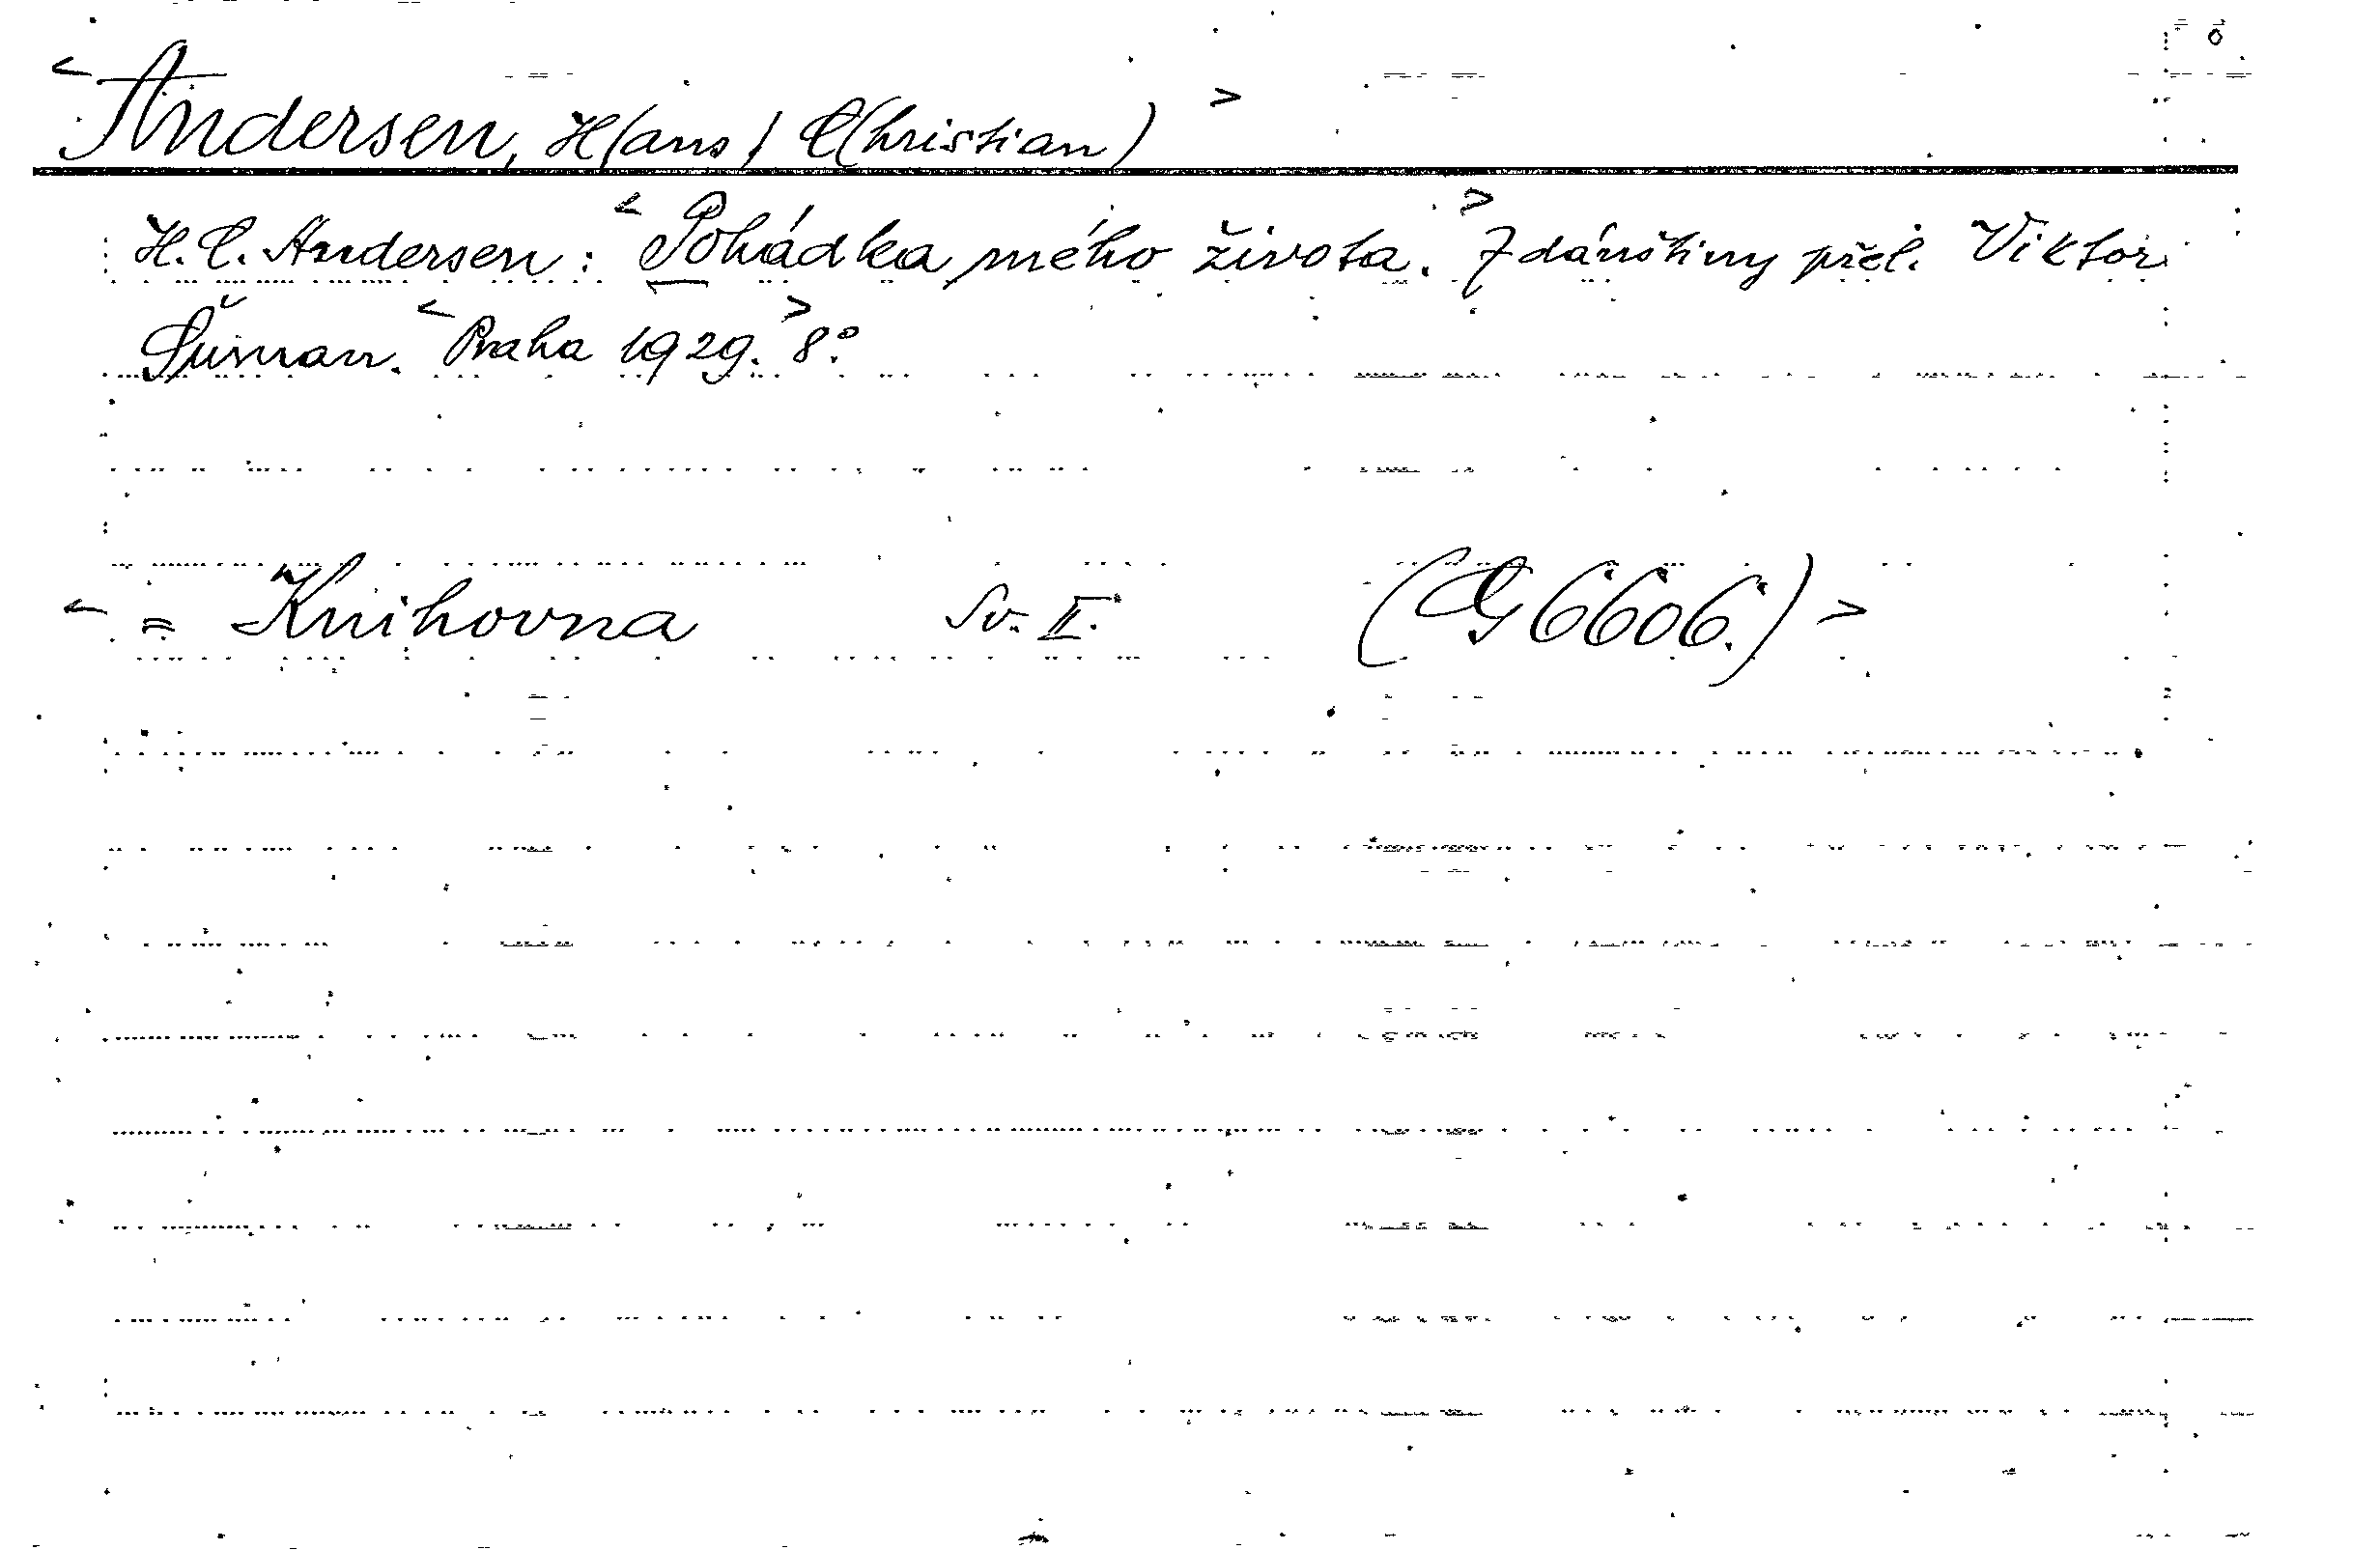 < Andersen, H(ans) C(hristian) >
H. C. Andersen: < Pohádka mého života. > Z dánštiny přel. Viktor
Šuman. < Praha 1929. > 8°.
< = Knihovna Sv. II. (G 6606.) >